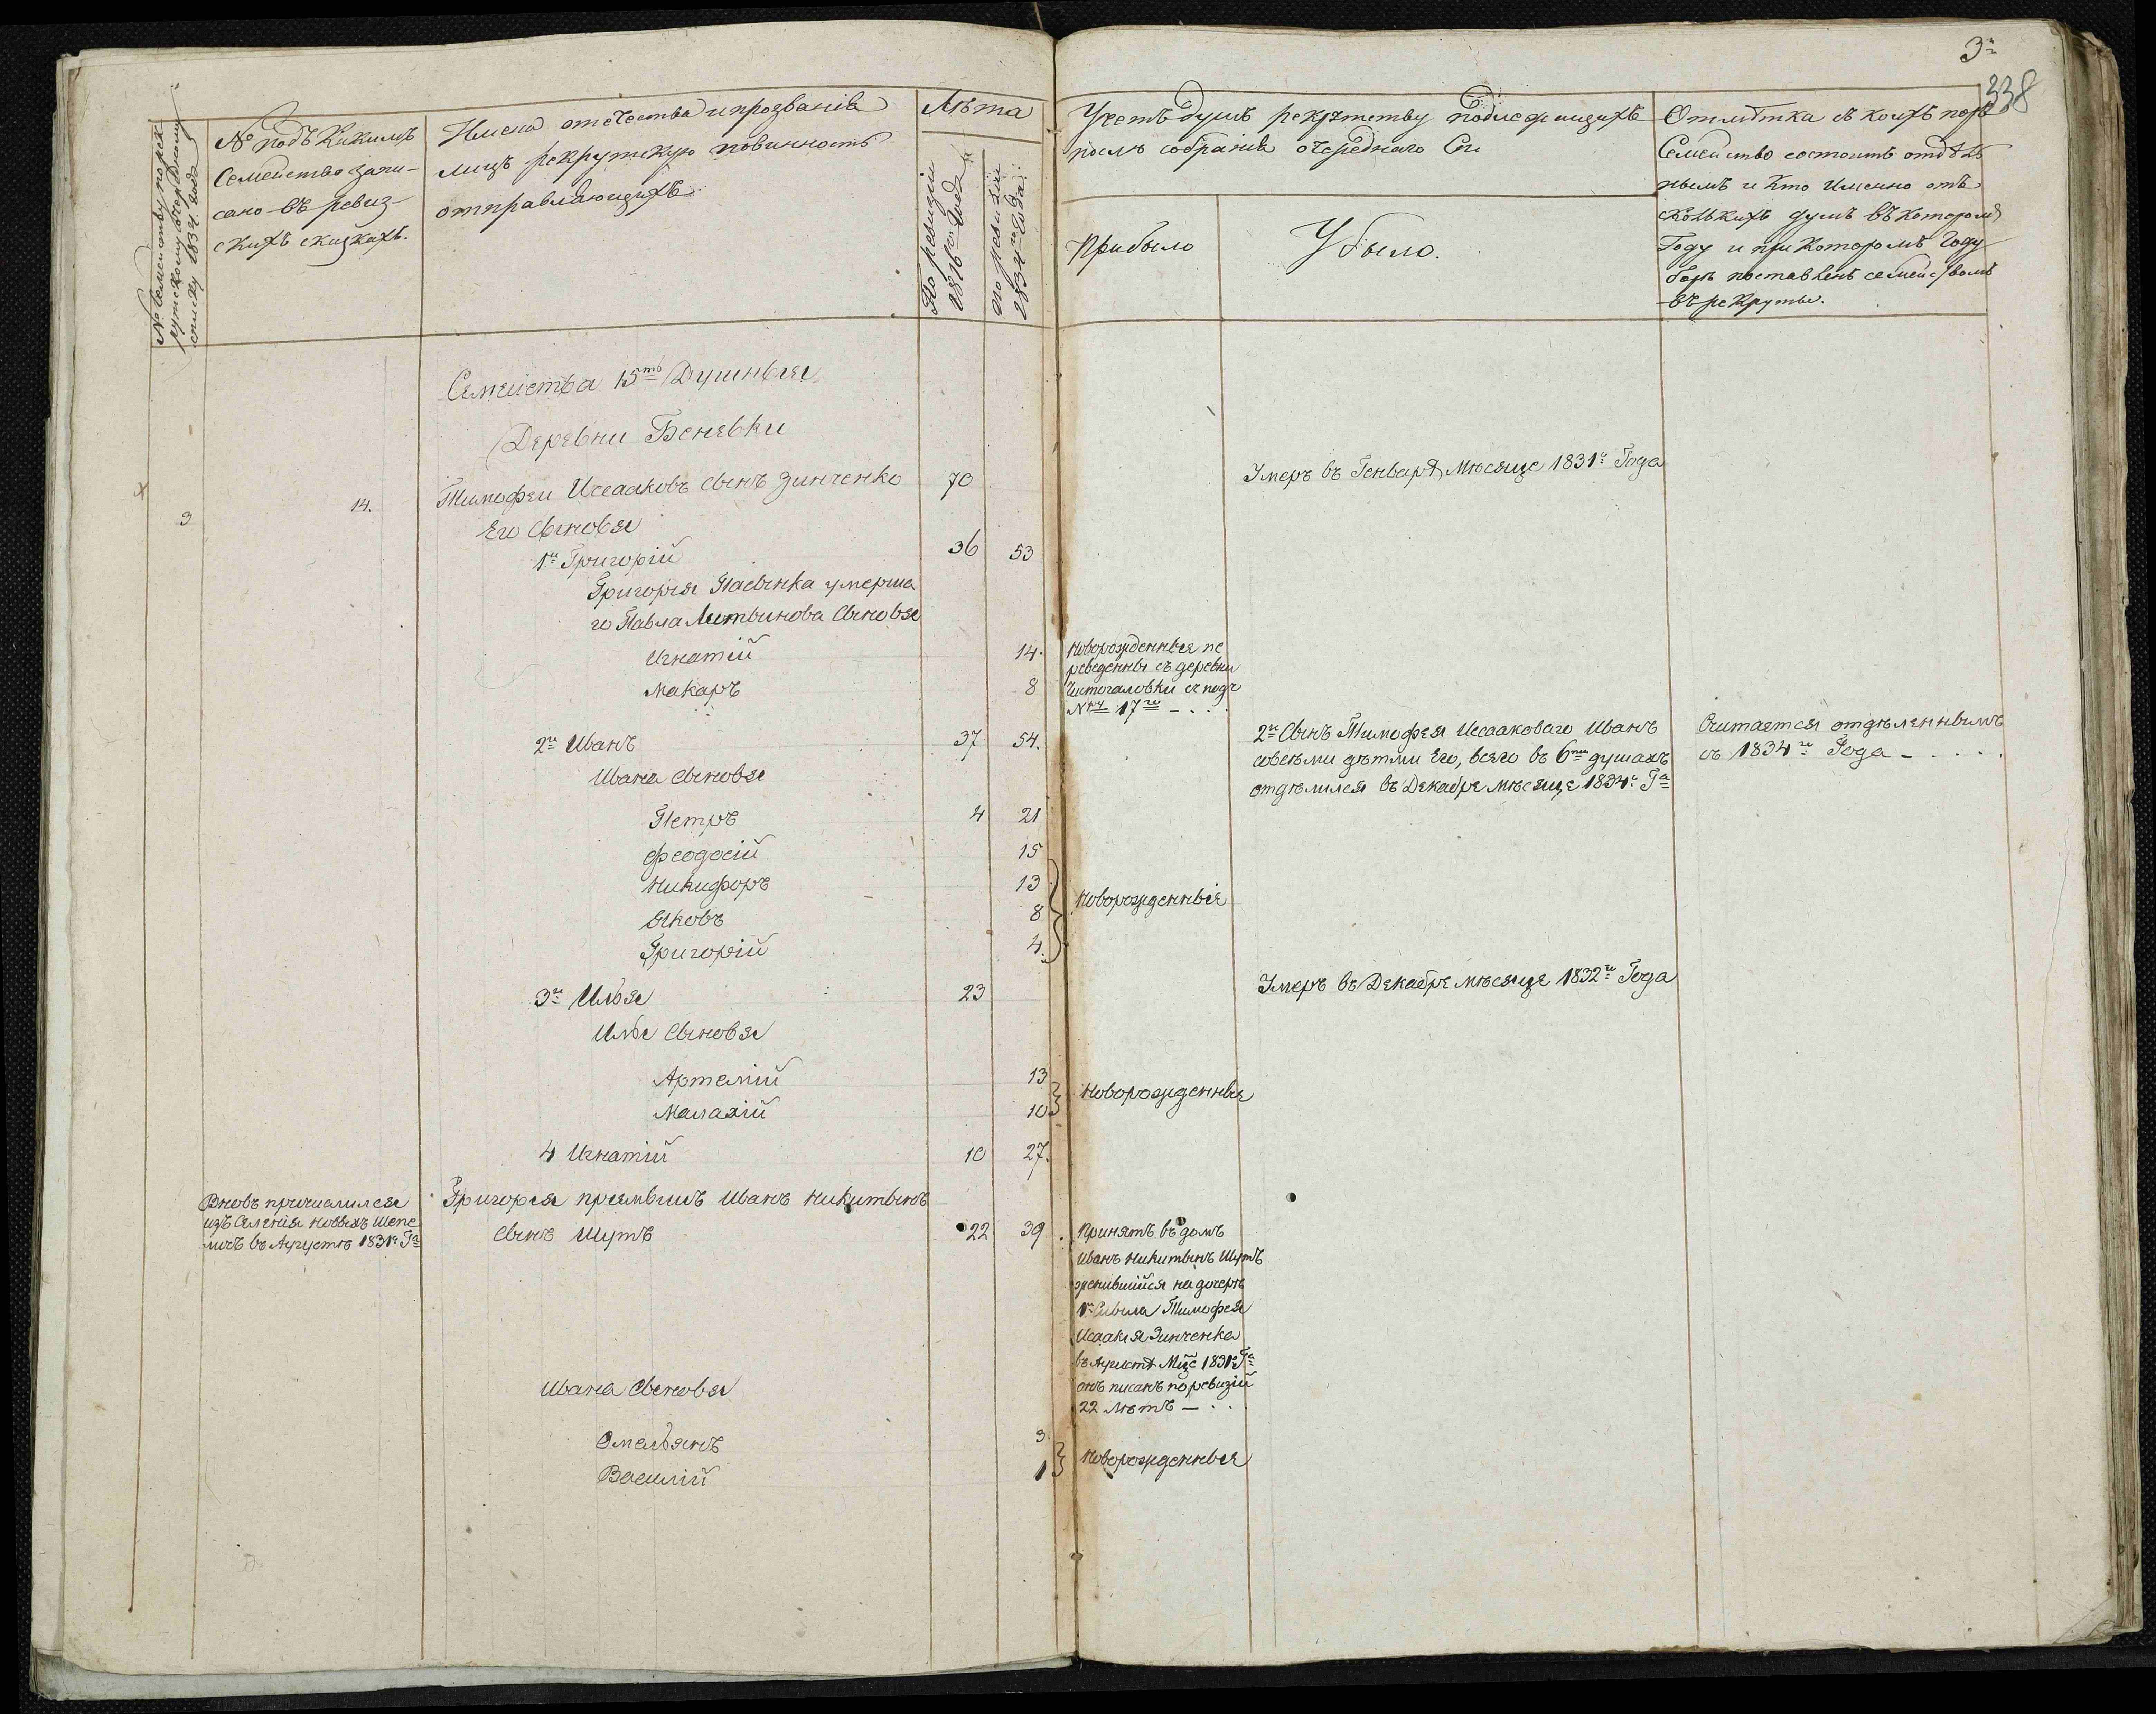 3й
338
№ семейству по рек-
рутскому очередному
списку 1834. года
№ подъ какимъ
семейство запи-
сано въ ревиз-
скихъ сказкахъ.
Имена отечества и прозванія
лицъ рекрутскую повинность
отправляющихъ
Лѣта
По ревизіи
1816го Года
по ревизіи
1834го Года:
Учетъ душъ рекрутству подлежащихъ
послѣ собранія очереднаго Сп:
Прибыло
Убыло.
Отмѣтка съ коихъ поръ
Семейство состоитъ отдѣль
нымъ и кто именно отъ
сколькихъ душъ въ которомъ
Году и при которомъ году
былъ поставленъ семействомъ
въ рекруты.
Семейства 15ть Душныя
Деревни Беневки
3
14.
Тимофей Иссааковъ сынъ Зинченко 70
Умеръ въ Генварѣ мѣсяце 1831го Года
Его сыновя
1й Григорій 36 53
Григорія Пасынка умерша
го Павла Литвинова сыновя
Игнатій 14.
Макаръ 8
Новорожденныя пе
реведенны съ деревни
Чистогаловки съ подъ
№ру 17го - . . .
2й Иванъ 37 54.
2й Сынъ Тимофея Иссааковаго Иванъ
совсѣми дѣтми Его, всего въ 6ти душахъ
отдѣлился въ Декабре мѣсяце 1834го Га
Считается отдѣленнымъ
съ 1834го Года - . . . .
Ивана сыновя
Петръ 4 21
Феодосій 15
Никифоръ 13
Яковъ 8
Григорій 4.
Новорожденныя
3й Илья 23
Умеръ въ Декабре мѣсяце 1832го Года
Ильи сыновя
Артемій 13
Малахій 10
Новорожденныя
4 Игнатій 10 27.
Вновъ причислился
изъ Селенія Новыхъ Шепе
личъ въ Августѣ 1831го Га
Григорія приймышъ Иванъ Никитинъ
сынъ Шутъ 22 39.
Принятъ въ домъ
Иванъ Никитинъ Шутъ
женившійся на дочерѣ
1го Сына Тимофея
Исаакія Зинченка
въ Августѣ Мцѣ 1831го Га
онъ писанъ по ревизіи
22 лѣтъ - . .
Ивана сыновя
Омельянъ 3.
Василій 1
Новорожденныя